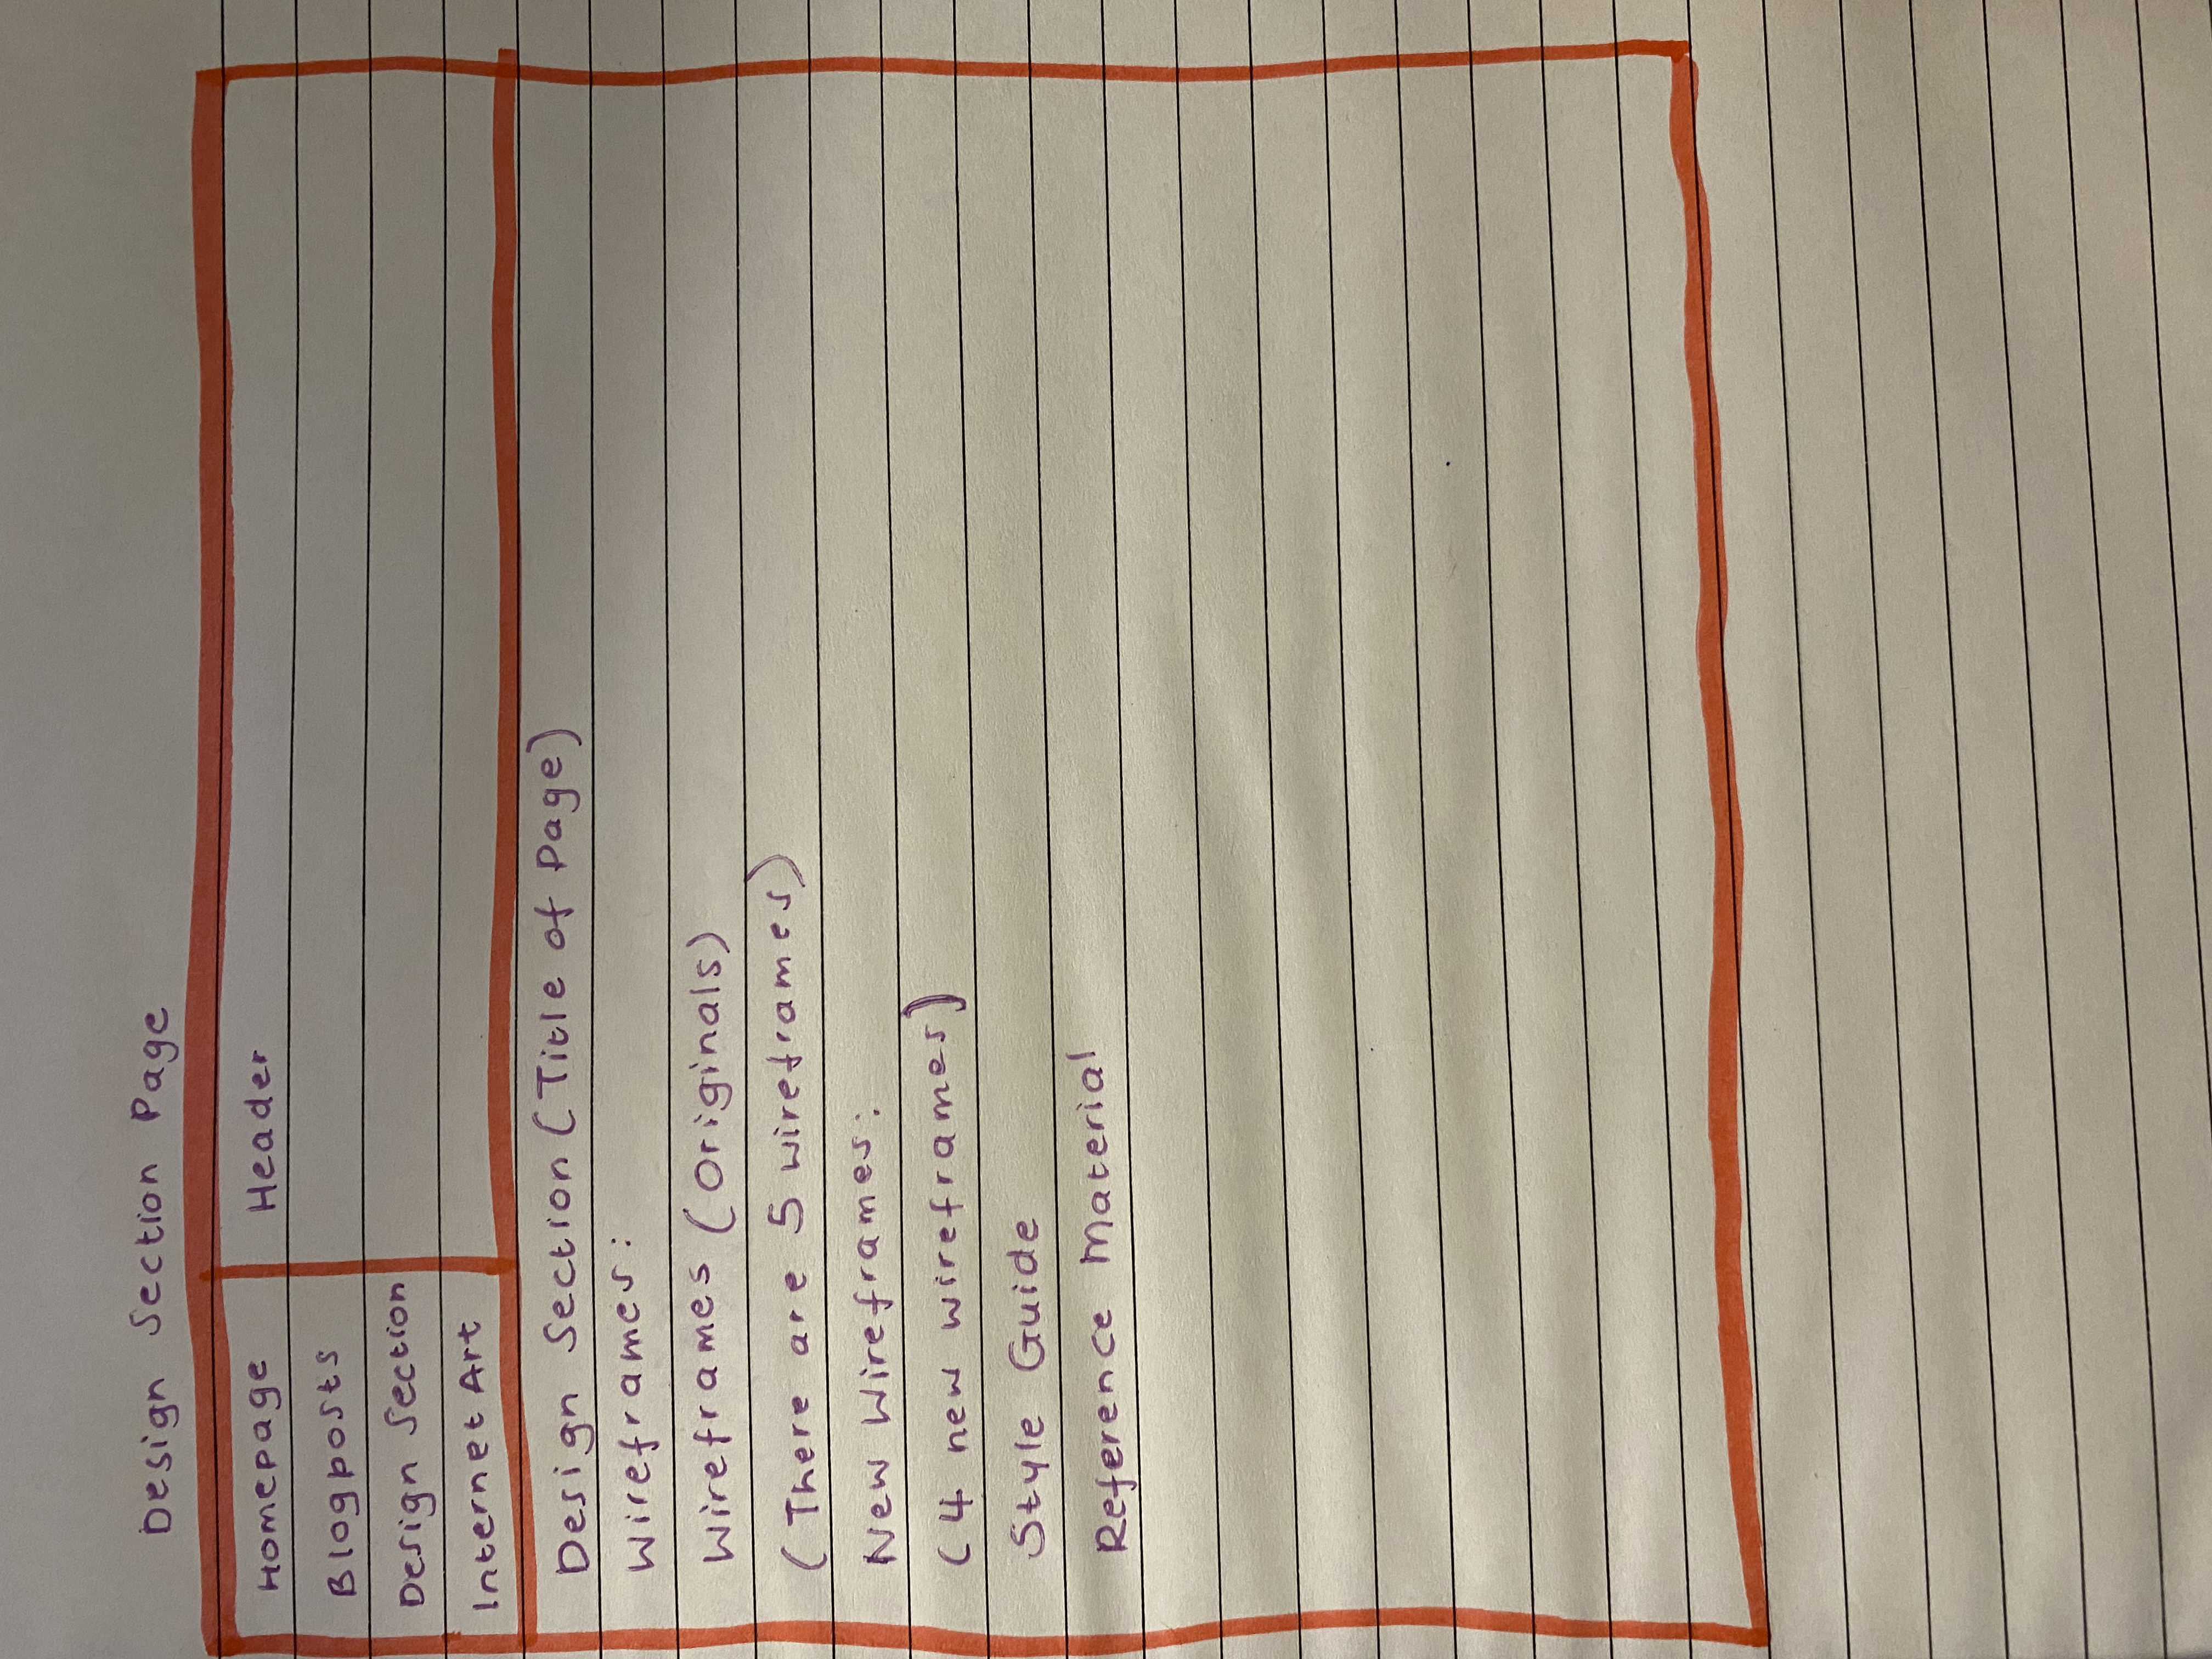 Design Section Page
Homepage
Header
Blogposts
Design Section
Internet Art
Design Section (Title of Page)
Wireframes:
Wireframes (Originals)
(There are 5 wireframes)
New Wireframes:
(4 new wireframes)
Style Guide
Reference Material